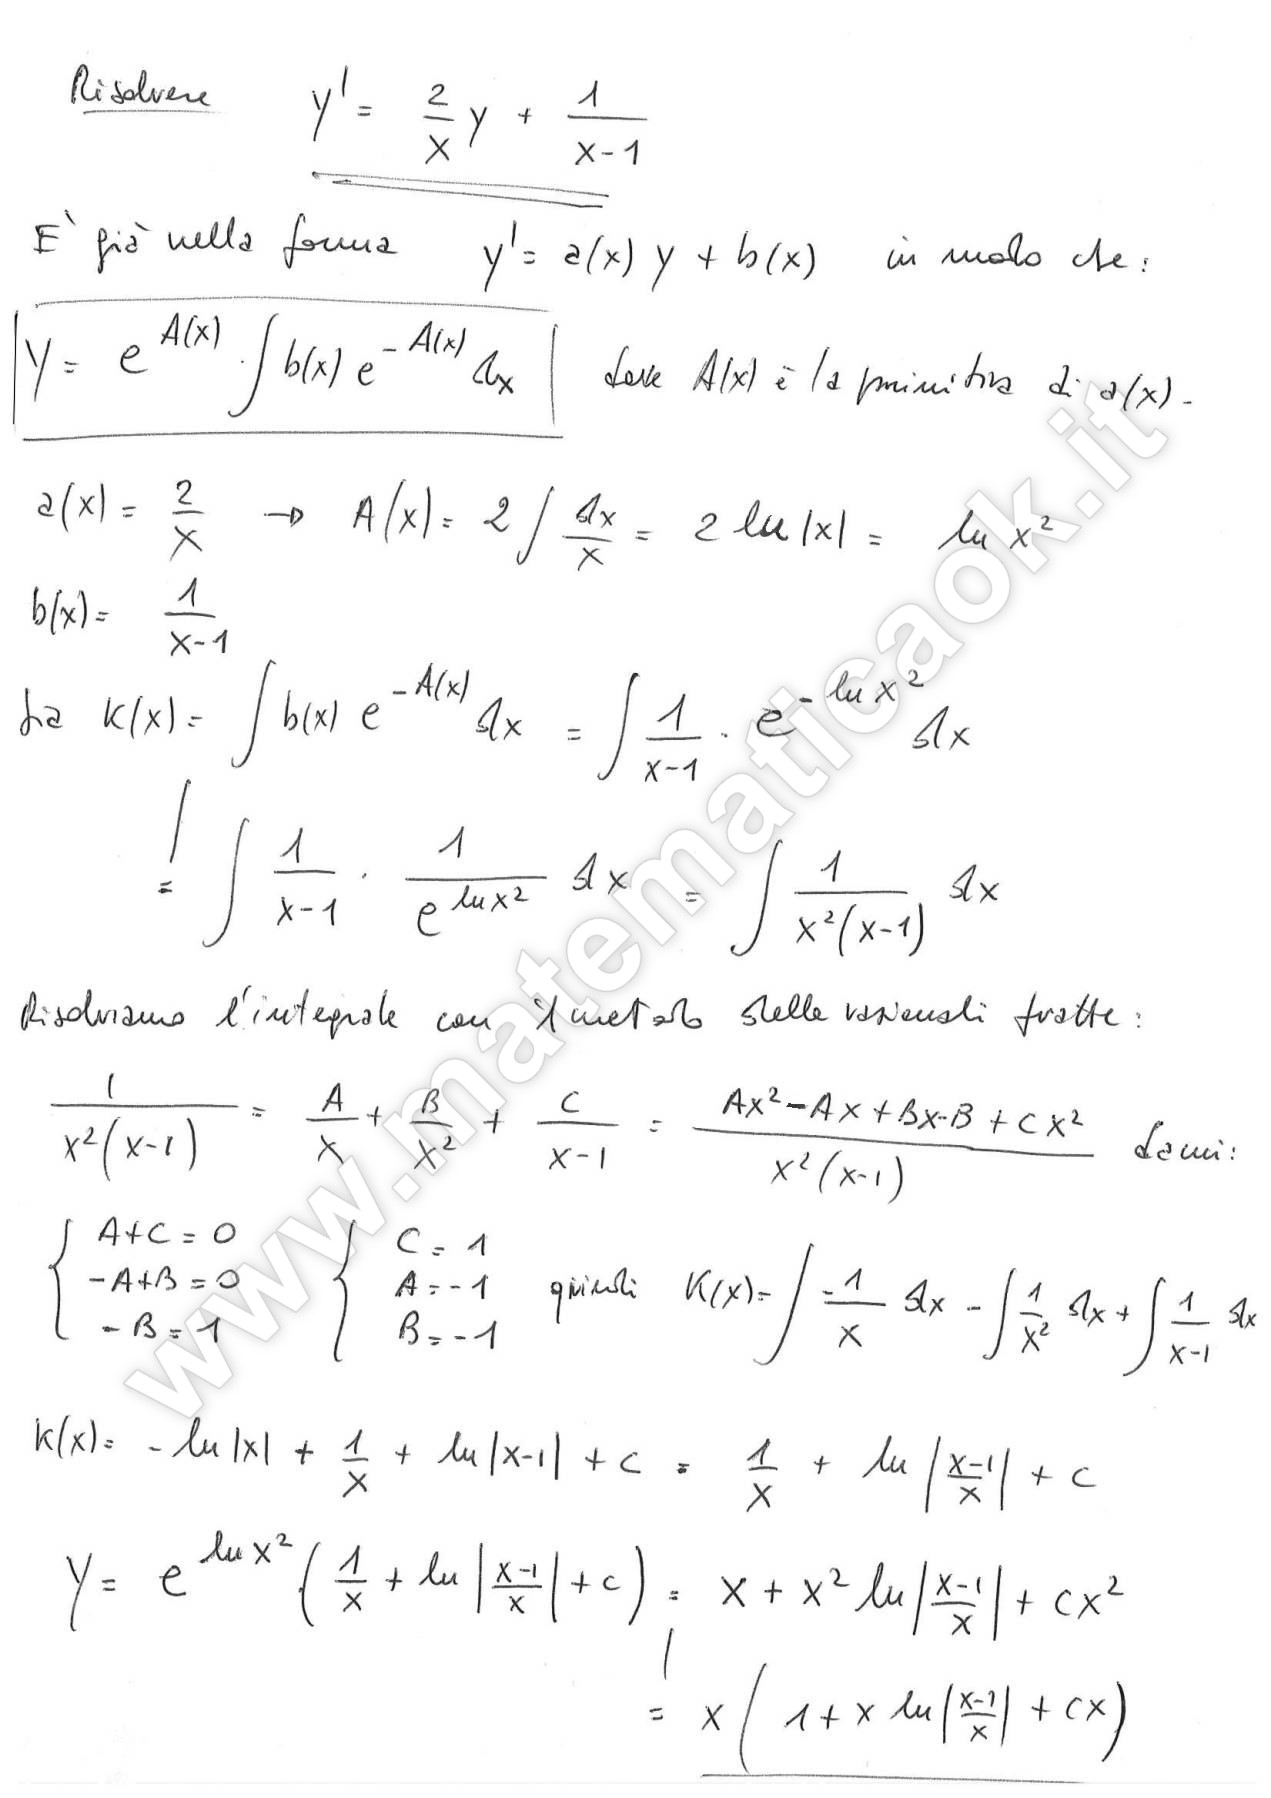 Risolvere y' = 2/x y + 1/(x-1)
E' già nella forma y' = a(x) y + b(x) in modo che:
y = e^{A(x)} · ∫ b(x) e^{-A(x)} dx dove A(x) è la primitiva di a(x).
a(x) = 2/x → A(x) = 2 ∫ dx/x = 2 ln |x| = ln x²
b(x) = 1/(x-1)
Sia K(x) = ∫ b(x) e^{-A(x)} dx = ∫ 1/(x-1) · e^{-ln x²} dx
= ∫ 1/(x-1) · 1/e^{ln x²} dx = ∫ 1/(x²(x-1)) dx
Risolviamo l'integrale con il metodo delle razionali fratte:
1/(x²(x-1)) = A/x + B/x² + C/(x-1) = (Ax² - Ax + Bx - B + Cx²)/(x²(x-1)) da cui:
{ A+C = 0 { C = 1
-A+B = 0 A = -1 quindi K(x) = ∫ -1/x dx - ∫ 1/x² dx + ∫ 1/(x-1) dx
-B = 1 B = -1
K(x) = - ln |x| + 1/x + ln |x-1| + c = 1/x + ln |(x-1)/x| + c
y = e^{ln x²} (1/x + ln |(x-1)/x| + c) = x + x² ln |(x-1)/x| + cx²
= x (1 + x ln |(x-1)/x| + cx)
www.matematicaok.it